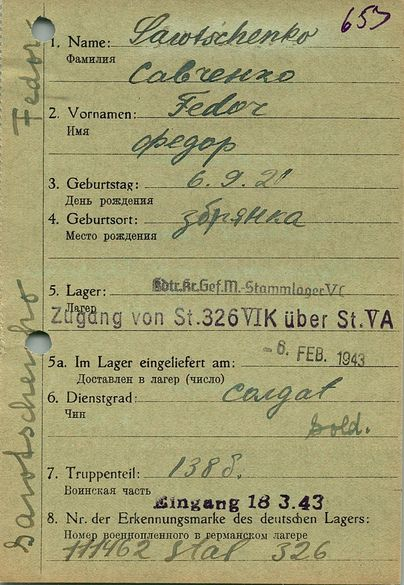 653
1. Name: Sawtschenko
Фамилия
Савченко
2. Vornamen: Fedor
Имя
Федор
3. Geburtstag: 6.9.21
День рождения
4. Geburtsort: Збрянка
Место рождения
5. Lager: Kdtr.Kr.Gef.M.-Stammlager V C
Лагер
Zugang von St.326 VIK über St.VA
5a. Im Lager eingeliefert am: - 6. FEB. 1943
Доставлен в лагер (число)
6. Dienstgrad: солдат
Чин
Sold.
7. Truppenteil:
Воинская часть
Eingang 18 3.43
8. Nr. der Erkennungsmarke des deutschen Lagers:
Номер военнопленного в германском лагере
111462 Stal 326
Sawtschenko Fedor